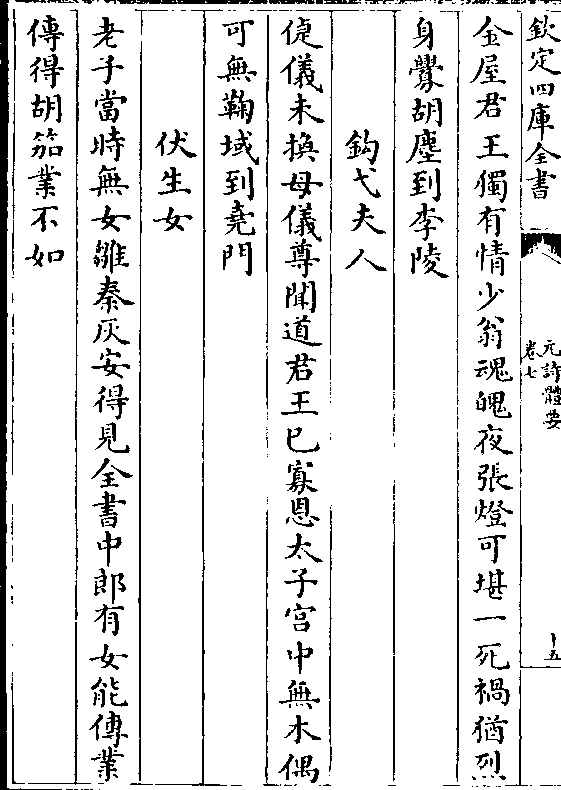 欽定四庫全書
元詩體要
卷七
十五
金屋君王獨有情少翁魂魄夜張燈可堪一死禍猶烈
身釁胡塵到李陵
鈎弋夫人
倢儀未換母儀尊聞道君王已寡恩太子宫中無木偶
可無鞠域到堯門
伏生女
老子當時無女雛秦灰安得見全書中郎有女能傳業
傳得胡笳業不如